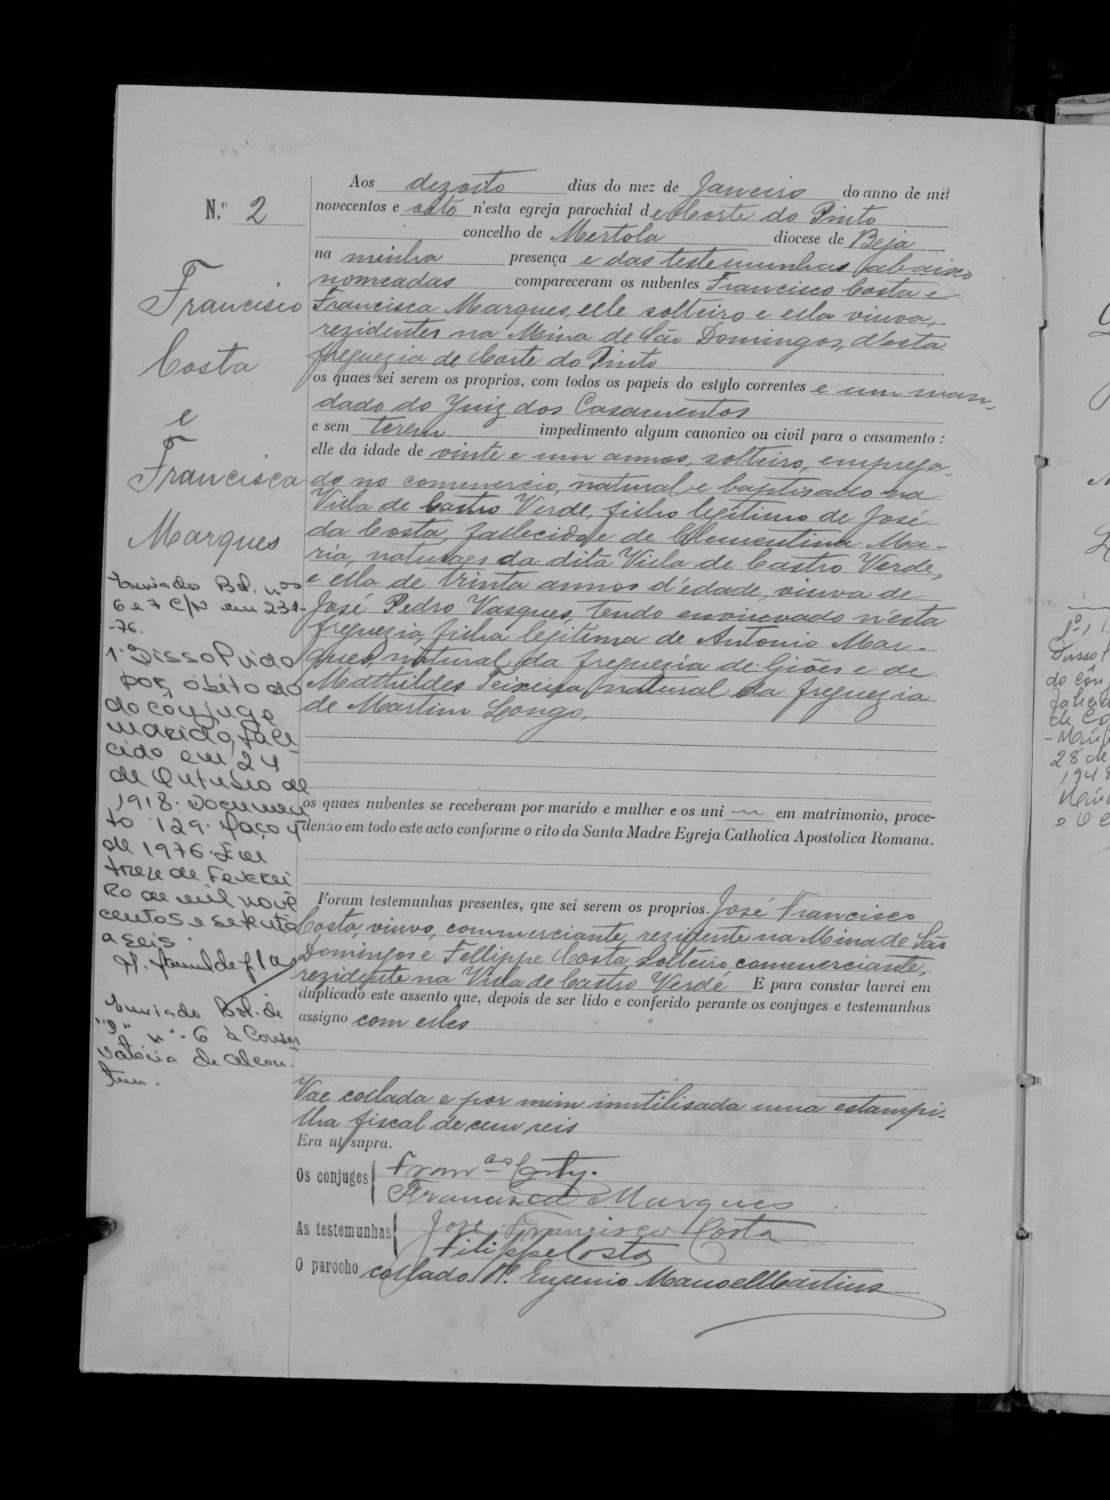 N.º 2
Francisco
Costa
e
Francisca
Marques
Aos dezoito dias do mez de Janeiro do anno de mil
novecentos e oito n'esta egreja parochial de Corte do Pinto
concelho de Mertola diocese de Beja
na minha presença e das testemunhas abaixo
nomeadas compareceram os nubentes Francisco Costa e
Francisca Marques, elle solteiro e ella viuva,
rezidentes na Mina de São Domingos, d'esta
freguezia de Corte do Pinto
os quaes sei serem os proprios, com todos os papeis do estylo correntes e um man-
dado do Juiz dos Casamentos
e sem terem impedimento algum canonico ou civil para o casamento:
elle da idade de vinte e um annos, solteiro, emprega-
do no commercio, natural e baptizado na
Villa de Castro Verde, filho legitimo de José
da Costa, fallecido, e de Clementina Ma-
ria, naturaes da dita Villa de Castro Verde,
e ella de trinta annos d'edade, viuva de
José Pedro Vasques, tendo enviuvado n'esta
freguezia, filha legitima de Antonio Mar-
ques, natural da freguezia de Giões e de
Mathildes Teixeira, natural da freguezia
de Martim Longo,
os quaes nubentes se receberam por marido e mulher e os uni em matrimonio, proce-
dendo em todo este acto conforme o rito da Santa Madre Egreja Catholica Apostolica Romana.
Foram testemunhas presentes, que sei serem os proprios. José Francisco
Costa, viuvo, commerciante, rezidente na Mina de São
Domingos e Fellippe Costa, solteiro, commerciante,
rezidente na Villa de Castro Verde E para constar lavrei em
duplicado este assento que, depois de ser lido e conferido perante os conjuges e testemunhas
assigno com elles
Vae collada e por mim inutilisada uma estampi-
lha fiscal de cem reis
Era ut supra.
Os conjuges
Francisca Marques
As testemunhas José Francisco Costa
Filippe Costa
O parocho collado, P.e Eugenio Manoel Martins
Enviado Bol. nos
6 e 7 em 23-1-
-76.
1-Dissolvido
por óbito do
do conjuge
marido, fale-
cido em 24
de Outubro de
1918. Documen
to 129. Maço 1
de 1976. Em
treze de Feverei
ro de mil nove
centos e setenta
e seis.
Enviado Bol. de
n.º 6 à Conser
vatória de Alcou-
tim.
1º,
Dissol
do conj
faleci
de Co
28 de
1948